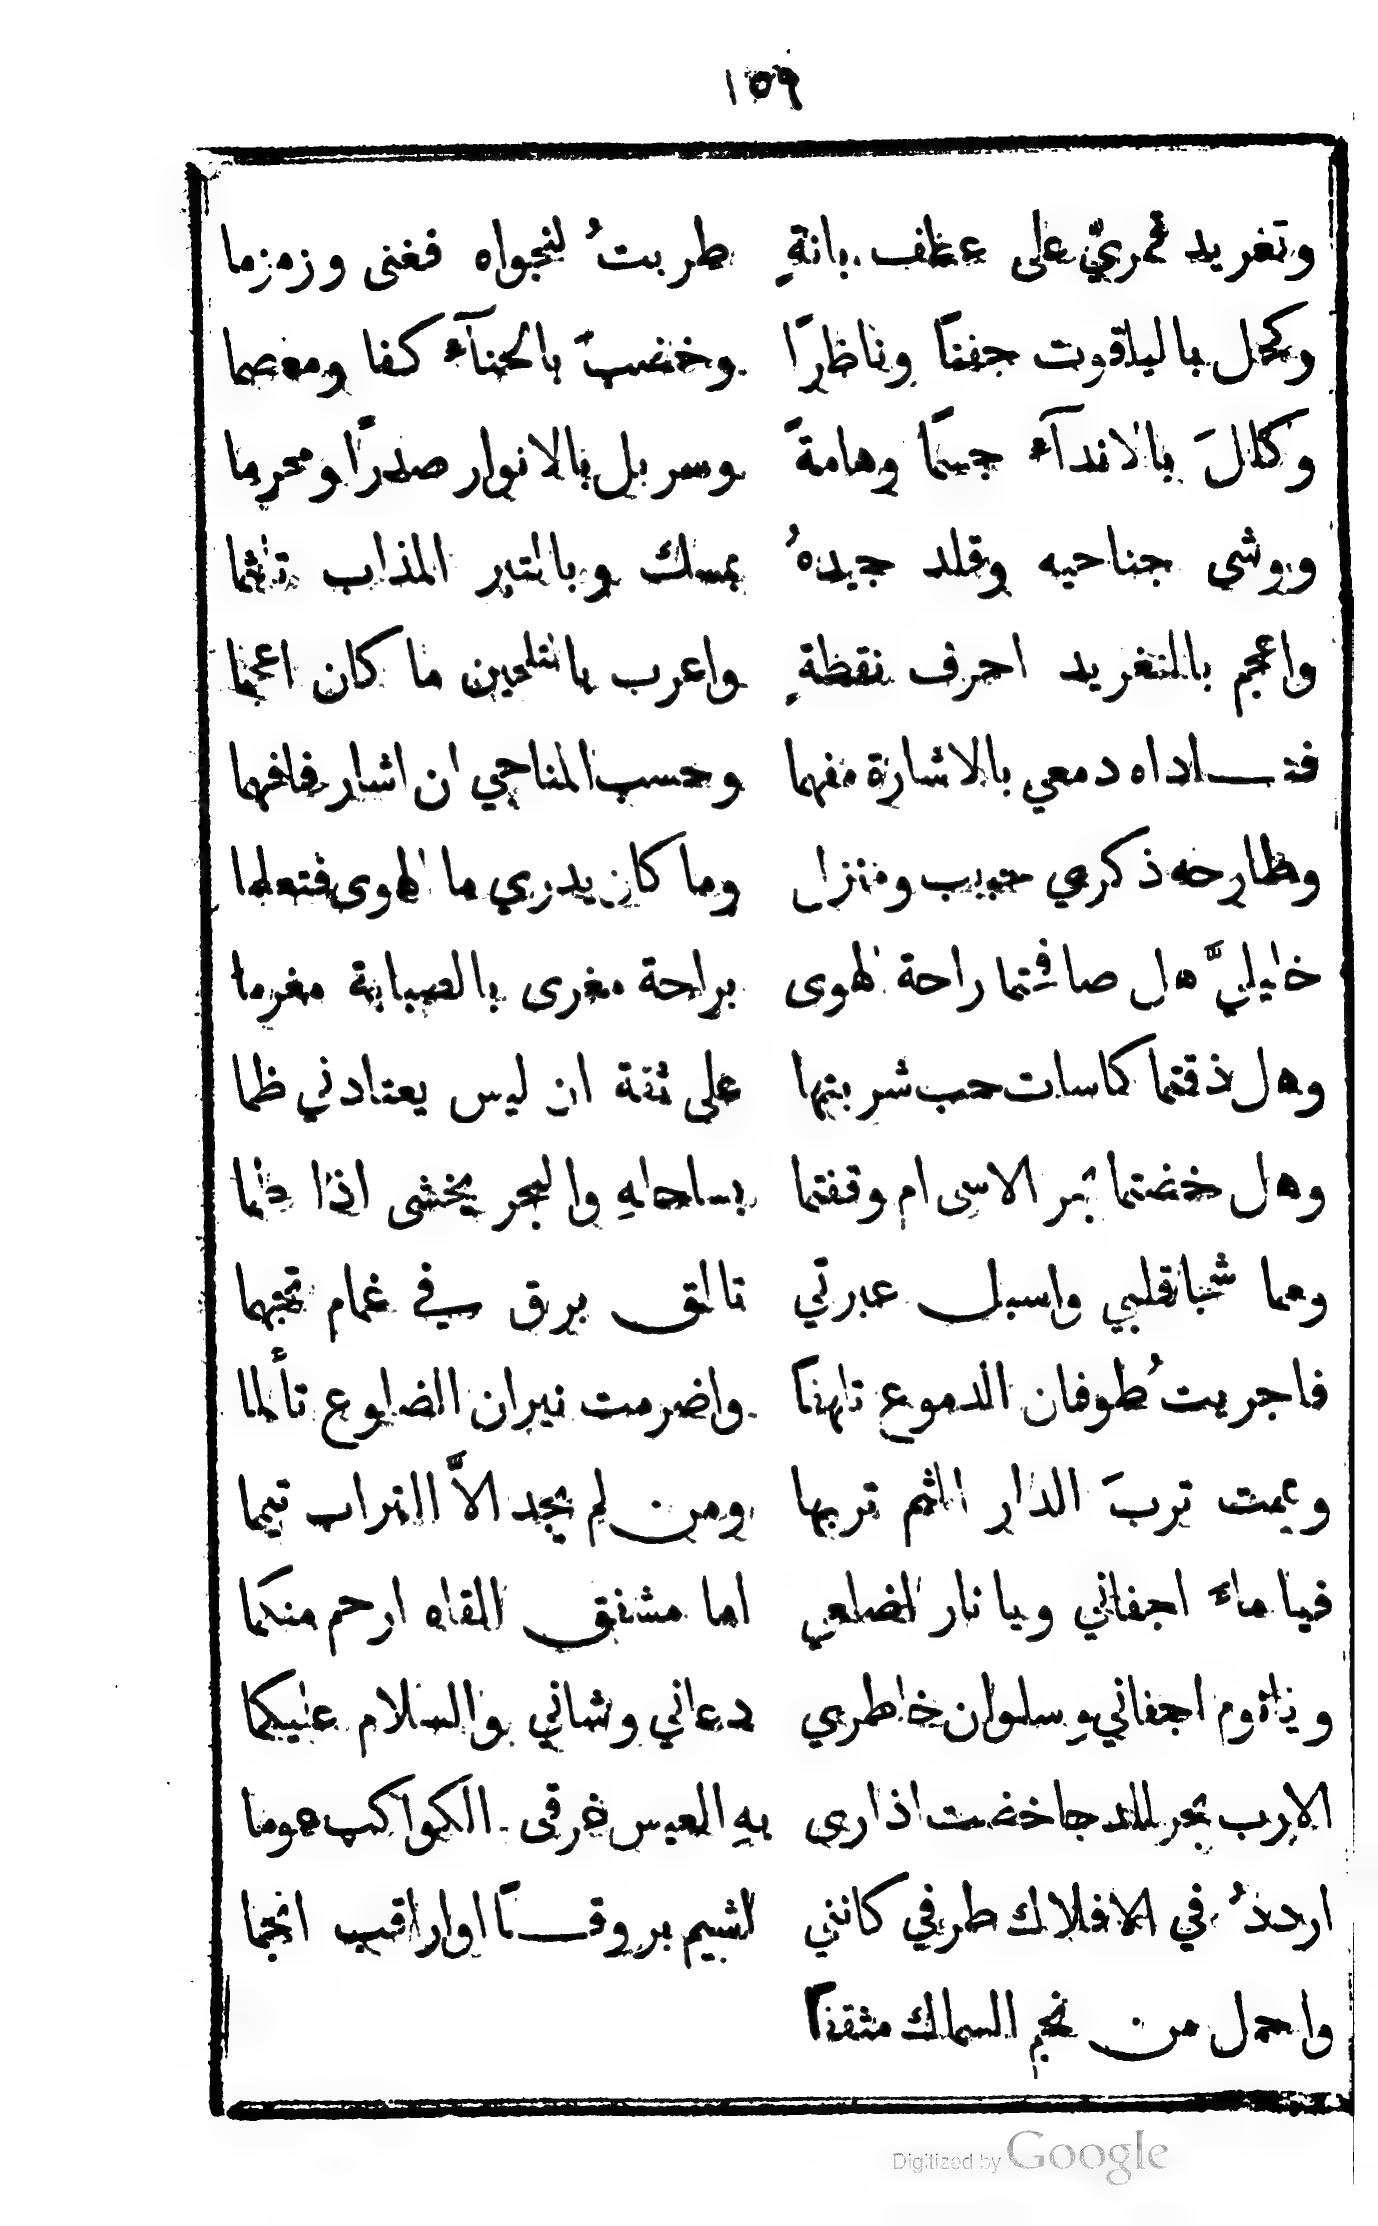 ١٥٩
وتغريد قمريٍّ على عطف بانةٍ طربتُ لنجواه فغنى وزمزما
وكحل بالياقوت جفنًا وناظرًا وخضبَ بالحنآء كفا ومعصما
وكللَ بالاندآء جسمًا وهامةً وسربل بالانوار صدرًا ومحرما
ووشى جناحيه وقلد جيدهُ بمسك وبالتبر المذاب تلثما
واعجم بالتغريد احرف نقطةٍ واعرب بالتلحين ما كان اعجما
فنــاداه دمعي بالاشارة مفهما وحسب المناجي ان اشار فافهما
وطارحه ذكرى حبيب ومنزل وما كان يدري ما الهوى فتعلما
خليليَّ هل صافحتما راحة الهوى براحة مغرى بالصبابة مغرما
وهل ذقتما كاسات حب شربتها على ثقة ان ليس يعتادني ظما
وهل خضتما بحر الاسى ام وقفتما بساحلهِ والبحر يخشى اذا طما
ومما شجا قلبي واسبل عبرتي تالق برق في غمام تجهما
فاجريت طُوفان الدموع تلهفًا واضرمت نيران الضلوع تأَلما
ويممت تربَ الدار الثم تربها ومن لم يجد الاَّ التراب تيمما
فيا ماءَ اجفاني ويا نار اضلعي اما مشفق القاه ارحم منكما
ويا نوم اجفاني وسلوان خاطري دعاني وشاني والسلام عليكما
الارب بحر للدجا خضت اذ ارى بهِ العيس غرقى الكواكب هوما
ارددُ في الافلاك طرفي كانني اشيم بروقــًا او اراقب انجما
واحمل من نجم السماك مثقفًا
Digitized by Google